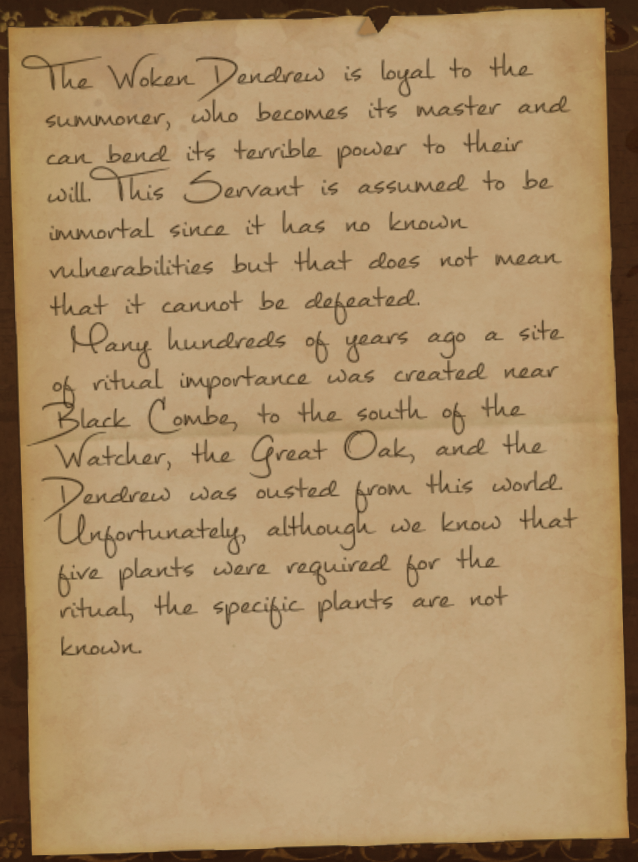 The Woken Dendrew is loyal to the
summoner, who becomes its master and
can bend its terrible power to their
will. This Servant is assumed to be
immortal since it has no known
vulnerabilities but that does not mean
that it cannot be defeated.
Many hundreds of years ago a site
of ritual importance was created near
Black Combe, to the south of the
Watcher, the Great Oak, and the
Dendrew was ousted from this world.
Unfortunately, although we know that
five plants were required for the
ritual, the specific plants are not
known.